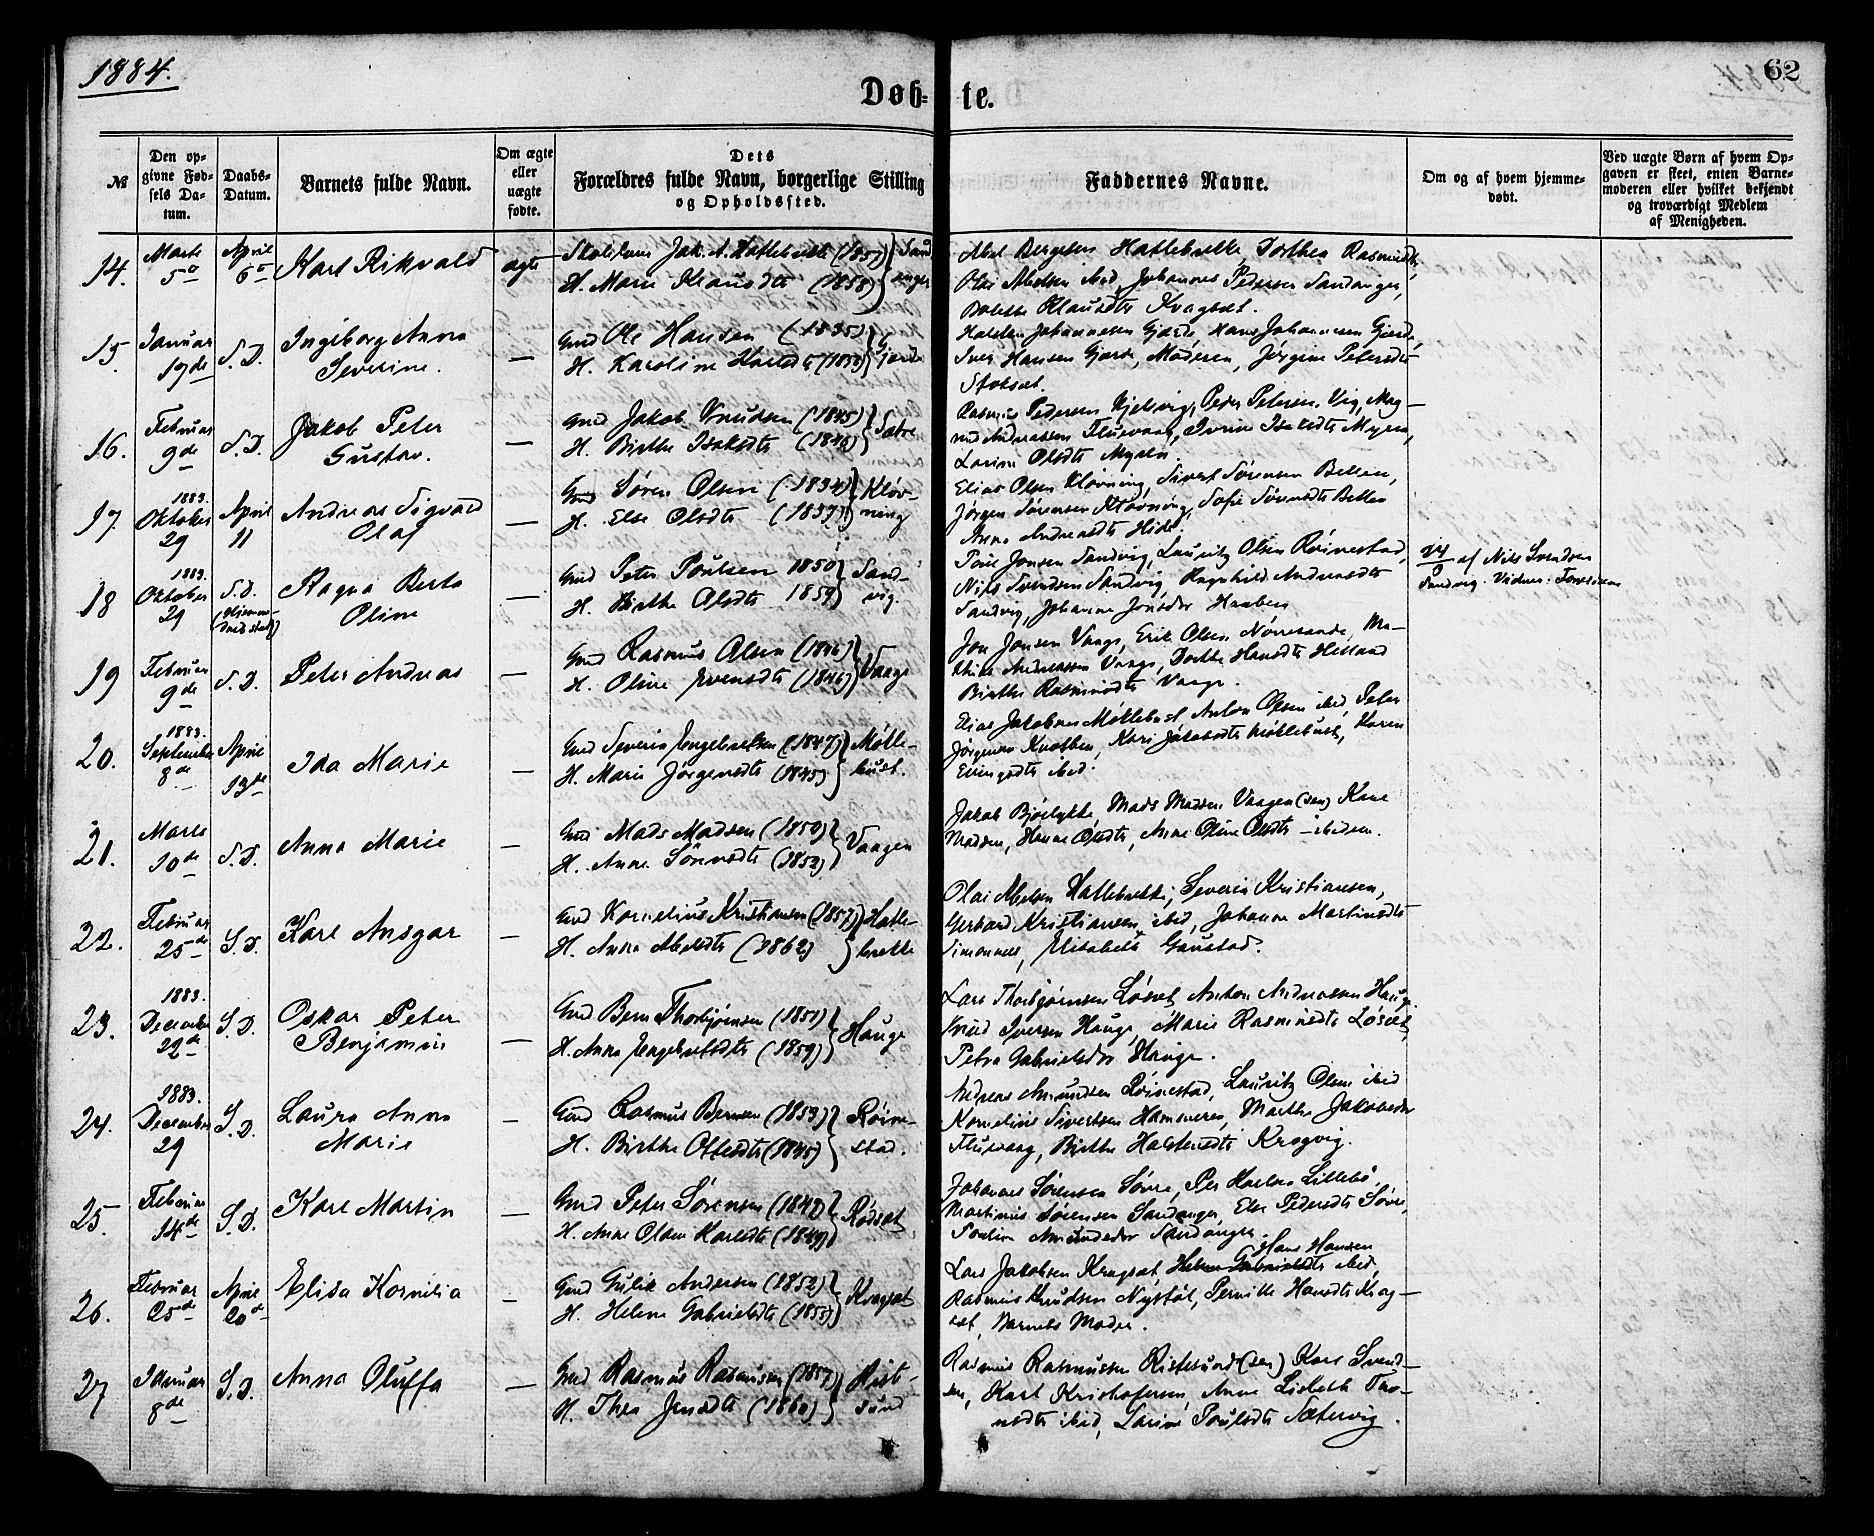 1884.
62
Døb= te.
№
Den op-
givne Fød-
sels Da-
tum.
Daabs-
Datum.
Barnets fulde Navn.
Om ægte
eller
uægte
fødte.
Dets
Forældres fulde Navn, borgerlige Stilling
og Opholdssted.
Faddernes Navne.
Om og af hvem hjemme-
døbt.
Ved uægte Børn af hvem Op-
gaven er skeet, enten Barne-
moderen eller hvilket bekjendt
og troværdigt Medlem
af Menigheden.
14.
Marts
5
April
6
Karl Rikvald
ægte
Jak. A. Hatlebrekke (1857)
H. Marie Klausdtr (1858)
Sand
anger
Abel Bergesen Hatlebrekke, Dorthea Rasmusdtr,
Olai Abelsen ibid, Johannes Pedersen Sandanger,
Klausdtr Kragsæt.
15.
Januar
19de
S.D.
Ingeborg Anna
Severine.
—
Gmd Ole Hansen (1835)
H. Karoline
Gjerde
Johannesen Gjerde, Hans Johannesen Gjerde,
Iver Hansen Gjerde, Moderen, Jørgine Petersdtr
16.
Februar
9de
S.D.
Jakob Peter
Gustav.
—
Gmd Jakob Knudsen (1845)
H. Birthe Isaksdtr (1846)
Sætre
Rasmus Pedersen Kjelsvig, Peder Petersen Vig, Mag-
Andreassen Flusvaag, Isaksdtr Myren,
Olsdtr
17.
1883.
Oktober
29
April
11
Andreas Sigvald
Olaf
—
Gmd Søren Olsen (1834)
H. Else Olsdtr (1837)
Kløv-
ning
Elias Olsen Kløvning, Sivert Sørensen
Jørgen Sørensen Kløvning, Sofie
Anna Andreasdtr Hide.
18
1883.
Oktober
29
S.D.
Ragna Berta
Oline
—
Gmd Peter Poulsen 1850
H. Birthe Olsdtr 1859
Sand-
vig.
Jonsen Sandvig, Lauritz Olsen Røinestad,
Nils Svendsen Sandvig, Ragnhild Andreasdtr
Sandvig, Johanne Jonsdtr
af Nils Svendsen
Sandvig.
19
Februar
9de
S.D.
Peter Andreas
—
Gmd Rasmus Olsen (1846)
H. Oline Evensdtr (1846)
Vaage
Jon Jonsen Vaage, Erik Olsen Nørresande, Ma-
Andreassen Vaage, Dorthe Hansdtr Helland
Birthe Rasmusdtr Vaage.
20.
1883.
September
8de
April
13de
Ida Marie
—
Gmd Severin Engebretsen (1847)
H. Marie Jørgensdtr (1845)
Møkle-
bust.
Elias Jakobsen Møklebust, Anton Olsen ibid, Peter
Jørgensen Knotten, Kari Jakobsdtr Møklebust, Karen
ibid.
21.
Marts
10de
S.D.
Anna Marie
—
Gmd Mads Madsen (1850)
H. Anne (1852)
Vaagen
Jakob Bjørlykke, Mads Madsen Vaagen (sen) Karl
Madsen, Hanne Olsdtr, Anne Oline Olsdtr – ibidem.
22.
Februar
25de
S.D.
Karl Ansgar
—
Gmd Kornelius Kristiansen (1857)
H. Anna Abelsdtr (1862)
Hatle-
brekke
Olai Abelsen Hatlebrekke, Severin Kristiansen,
Gerhard Kristiansen ibid, Johanne Martinsdtr
Simonnes, Elisabeth Gaustad.
23.
1883.
December
22de
S.D.
Oskar Peter
Benjamin
—
Gmd Bern Thorbjørnsen (1851)
H. Anna Engebretsdtr (1859)
Hauge
Lars Thorbjørnsen Løset, Anton Andreassen Hauge.
Knud Iversen Hauge, Marie Rasmusdtr Løset,
Petra Gabrielsdtr Hauge.
24.
1883.
December
29
S.D.
Laura Anna
Marie
—
Gmd Rasmus Bernsen (1853)
H. Birthe (1845)
Røine-
stad.
Andreas Amundsen Røinestad, Lauritz Olsen ibid
Kornelius Sivertsen Hamneren, Marthe Jakobsdtr
Flusvaag, Birthe Halstensdtr Kragvig.
25
Februar
14de
S.D.
Karl Martin
—
Gmd Peter Sørensen (1842)
H. Anne Olsen Karlsdtr (1849)
Rødsæt
Johannes Sørensen Søvre, Per Karlsen Lillebø,
Martinus Sørensen Sandanger, Else Pedersdtr Søvre,
Amundsdtr Sandanger.
26.
Februar
25de
April
20de
Elisa Kornelia
—
Gmd Gulik Andersen (1852)
H. Helene Gabrielsdtr (1855)
Kragsæt
Hans Hansen
Lars Jakobsen Kragsæt, Helene Gabrielsdtr ibid,
Rasmus Knudsen Nystøl, Pernille Hansdtr Krag-
sæt, Barnets Moder.
27
Januar
8de
S.D.
Anna Oluffa
—
Gmd Rasmus Rasmussen (1857)
H. Thea Jensdtr (1860)
Rist-
sund
Rasmus Rasmussen Ristesund (sen) Karl Svend-
sen, Karl Kristofersen, Anne Lisbeth Tho-
ibid, Larine Poulsdtr Sætervig.